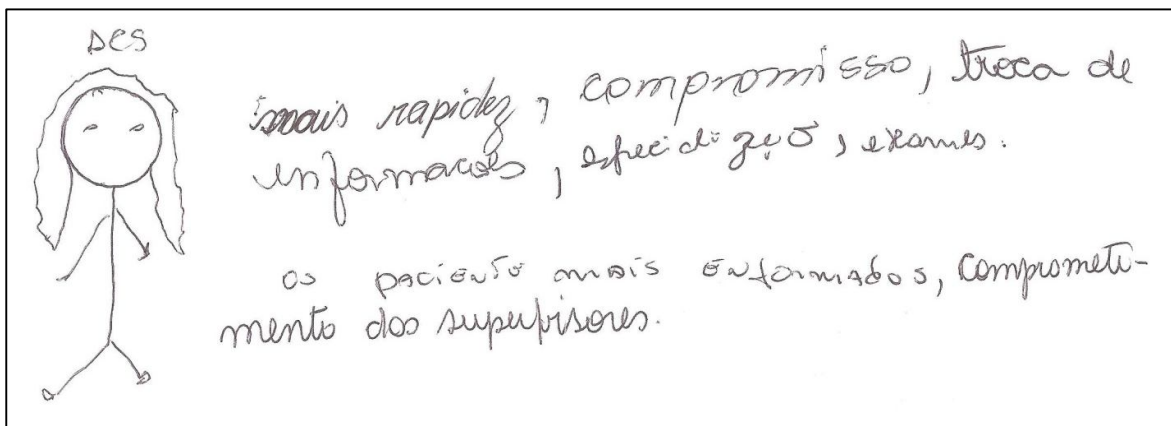 DCS
mais rapidez, compromisso, troca de
informações, especialização, exames.
os paciente mais enformados, comprometi-
mento dos supervisores.